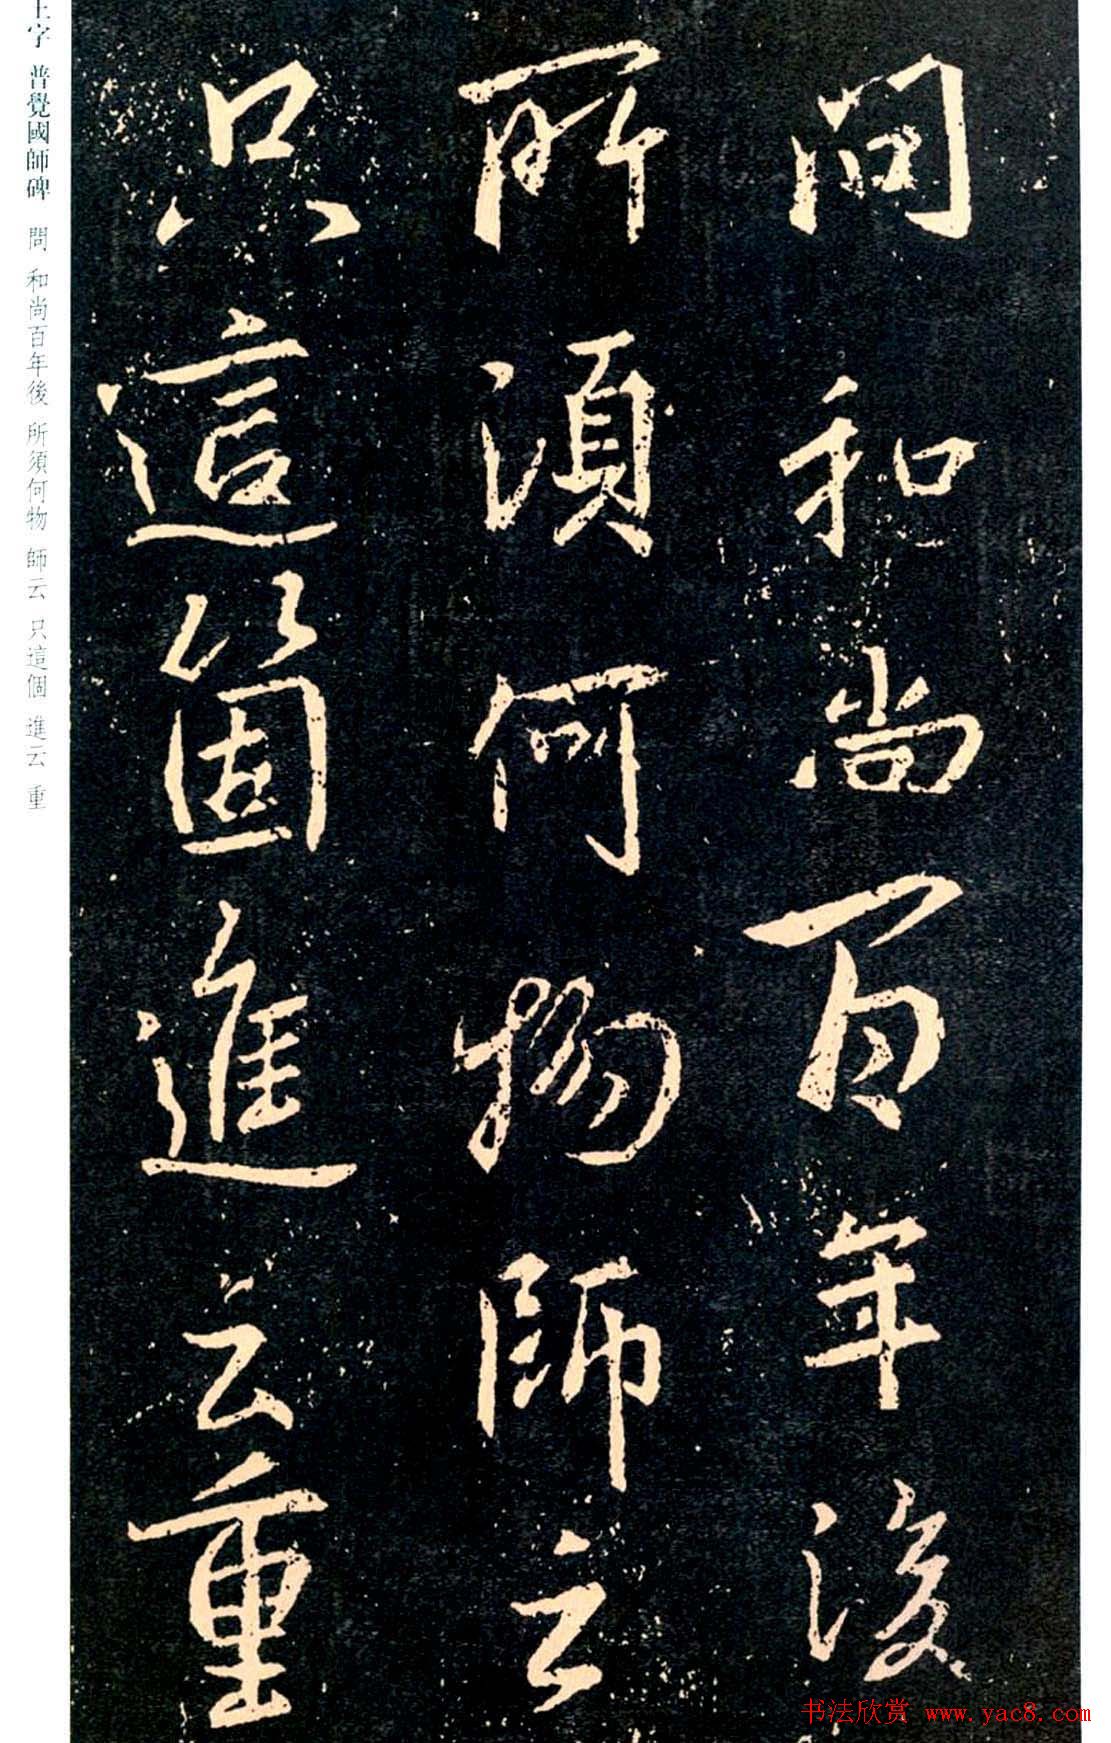 問和尚百年後
所須何物師云
只這箇進云重
王字 普覺國師碑 問 和尚百年後 所須何物 師云 只這個 進云 重
书法欣赏 www.yac8.com